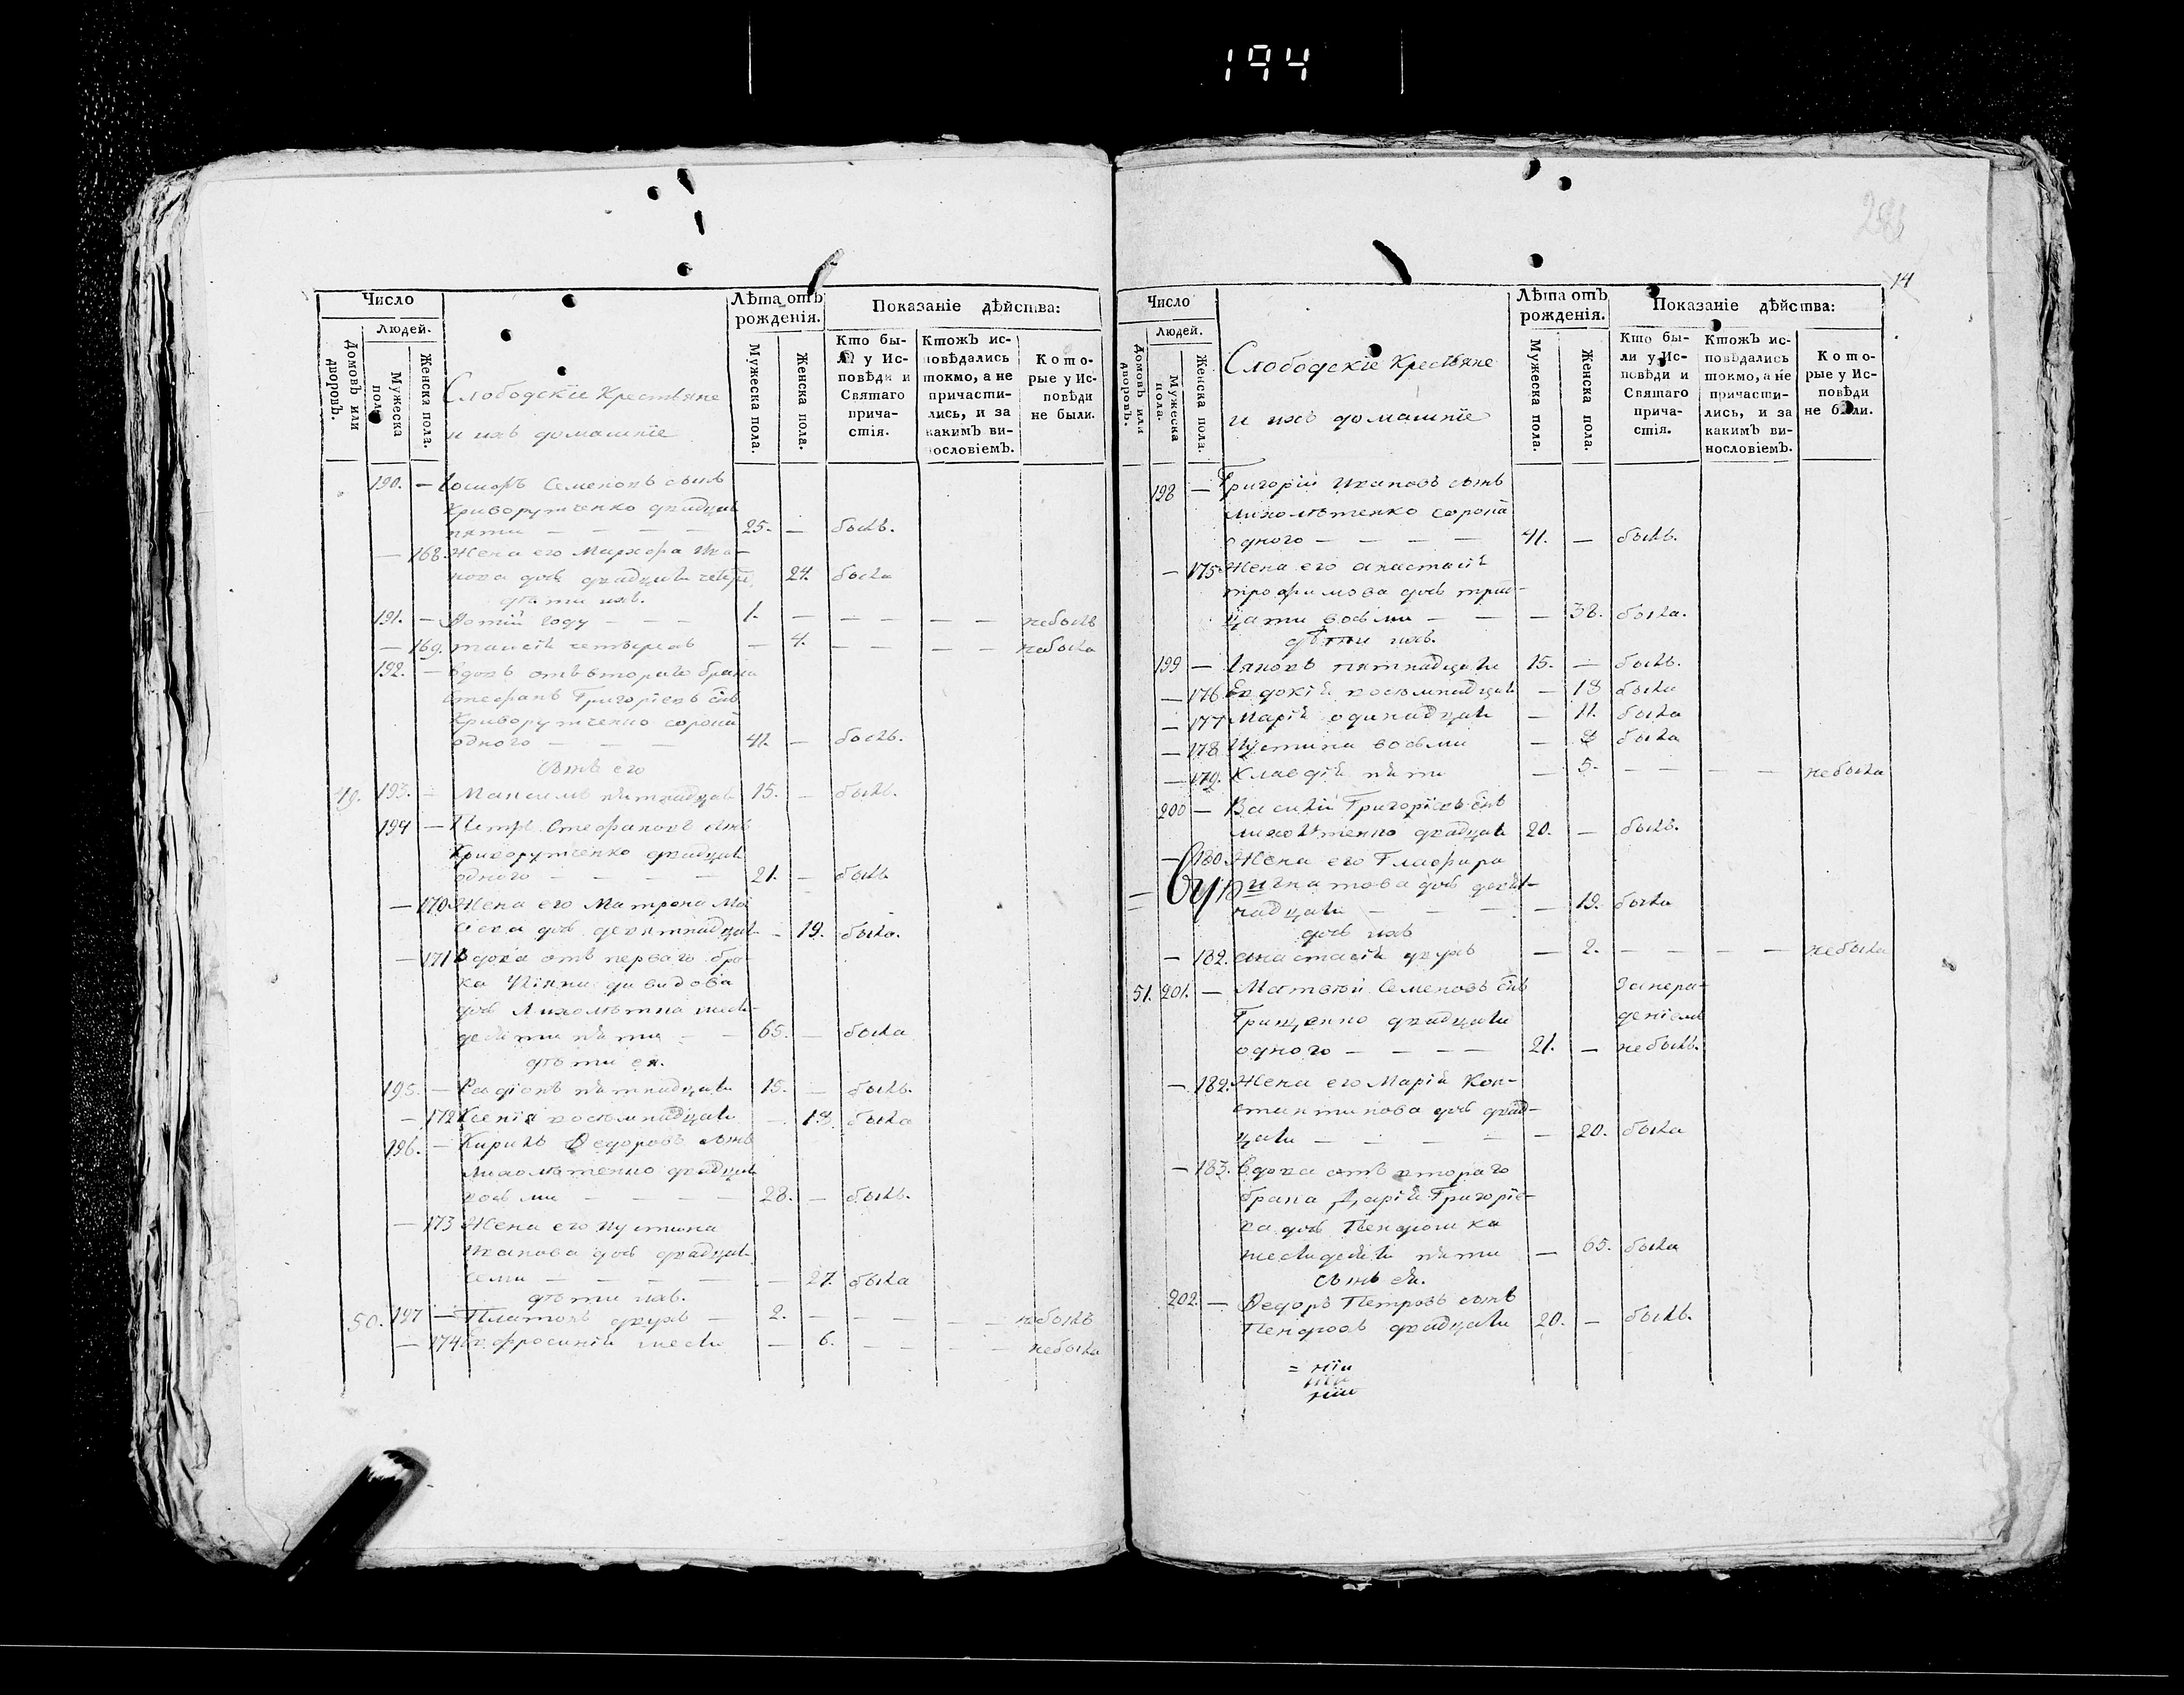 194
Число
Лѣта отъ рожденія.
Показаніе дѣйства:
Людей.
Домовъ или дворовъ.
Мужеска пола.
Женска пола.
Слободскіе Крестьяне
и ихъ домашніе
Мужеска пола.
Женска пола.
Кто бы-
ли у Ис-
повѣди и
Святаго
прича-
стія.
Ктожъ ис-
повѣдались
токмо, а не
причасти-
лись, и за
какимъ ви-
нословіемъ.
Кото-
рые у Ис-
повѣди
не были.
190. — Семеновъ сынъ
Криворутченко двадцати
пяти — — — — 25. — былъ.
— 168. Жена его Марфа Ива-
нова дочь двадцати четыре 24. была
дѣти ихъ.
191. — году — — — 1. — — — — — небылъ
— 169. четырехъ — 4. — — — — небыла
192. — вдовъ отъ втораго брака
Стефанъ Григоріевъ сынъ
Криворутченко сорока
одного — — — 41. — былъ.
Сынъ его
49. 193. — Максимъ пятнадцати 15. — былъ.
194 — Петръ Стефановъ сынъ
Криворутченко двадцати
одного — — — — 21. — былъ
— 170 Жена его Матрона
дочь девятнадцати — 19. была.
— 171 Вдова отъ перваго бра-
ка давидова
дочь Лихолѣтка шесть-
десяти пяти — — 65. — была
дѣти ея.
195. — Радіонъ пятнадцати 15. — былъ.
— 172 Ксенія восемнадцати — 18. была
196. — Кирилъ Федоровъ сынъ
Лихолѣтенко двадцати
восьми — — — — 28. — былъ.
— 173 Жена его Иустина
Иванова дочь двадцати
семи — — — — — 27. была
дѣти ихъ.
50. 197 — Платонъ двухъ — 2. — — — — — небылъ
— 174 Евфросинія шести — 6. — — — — небыла
14
Число
Лѣта отъ рожденія.
Показаніе дѣйства:
Людей.
Домовъ или дворовъ.
Мужеска пола.
Женска пола.
Слободскіе Крестьяне
и ихъ домашніе
Мужеска пола.
Женска пола.
Кто бы-
ли у Ис-
повѣди и
Святаго
прича-
стія.
Ктожъ ис-
повѣдались
токмо, а не
причасти-
лись, и за
какимъ ви-
нословіемъ.
Кото-
рые у Ис-
повѣди
не были.
198 — Григорій Ивановъ сынъ
Лихолѣтенко сорока
одного — — — — 41. — былъ.
— 175 Жена его Анастасія
трофимова дочь трид-
цати восьми — — — 38. была.
дѣти ихъ.
199 — Іаковъ пятнадцати 15. — былъ.
— 176 Евдокія восемнадцати — 18 была
— 177 Марія одинадцати — 11. была
— 178 Иустина восьми — 8 была
— 179. Клавдія пяти — 5. — — — — небыла
200 — Василій Григоріевъ сынъ
Лихолѣтенко двадцати 20. — былъ.
— 180 Жена его Глафира
Игнатова дочь девят-
надцати — — — — 19. была
дочь ихъ
— 182. Анастасія двухъ — 2. — — — — небыла
51. 201. — Матвѣй Семеновъ сынъ
Грищенко двадцати
одного — — — — 21. — небылъ.
— 182. Жена его Марія Кон-
стантинова дочь двад-
цати — — — — — 20. была
— 183. Вдова отъ втораго
брака Дарія Григоріе-
ва дочь
шестидесяти пяти — 65. была
Сынъ ея.
202. — Федоръ Петровъ сынъ
двадцати 20. — былъ.